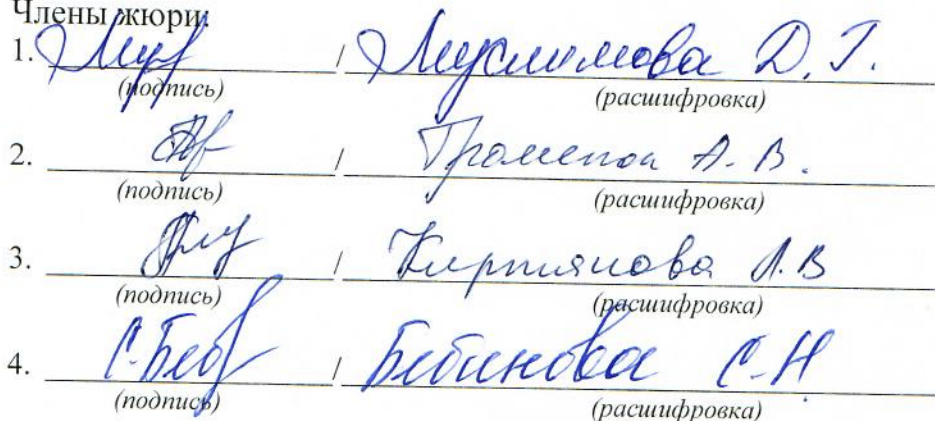 Члены жюри:
1. / Муслимова Д. Г.
(подпись) (расшифровка)
2. / А. В.
(подпись) (расшифровка)
3. / А. В
(подпись) (расшифровка)
4. С. Беб / Бебинова С. Н
(подпись) (расшифровка)